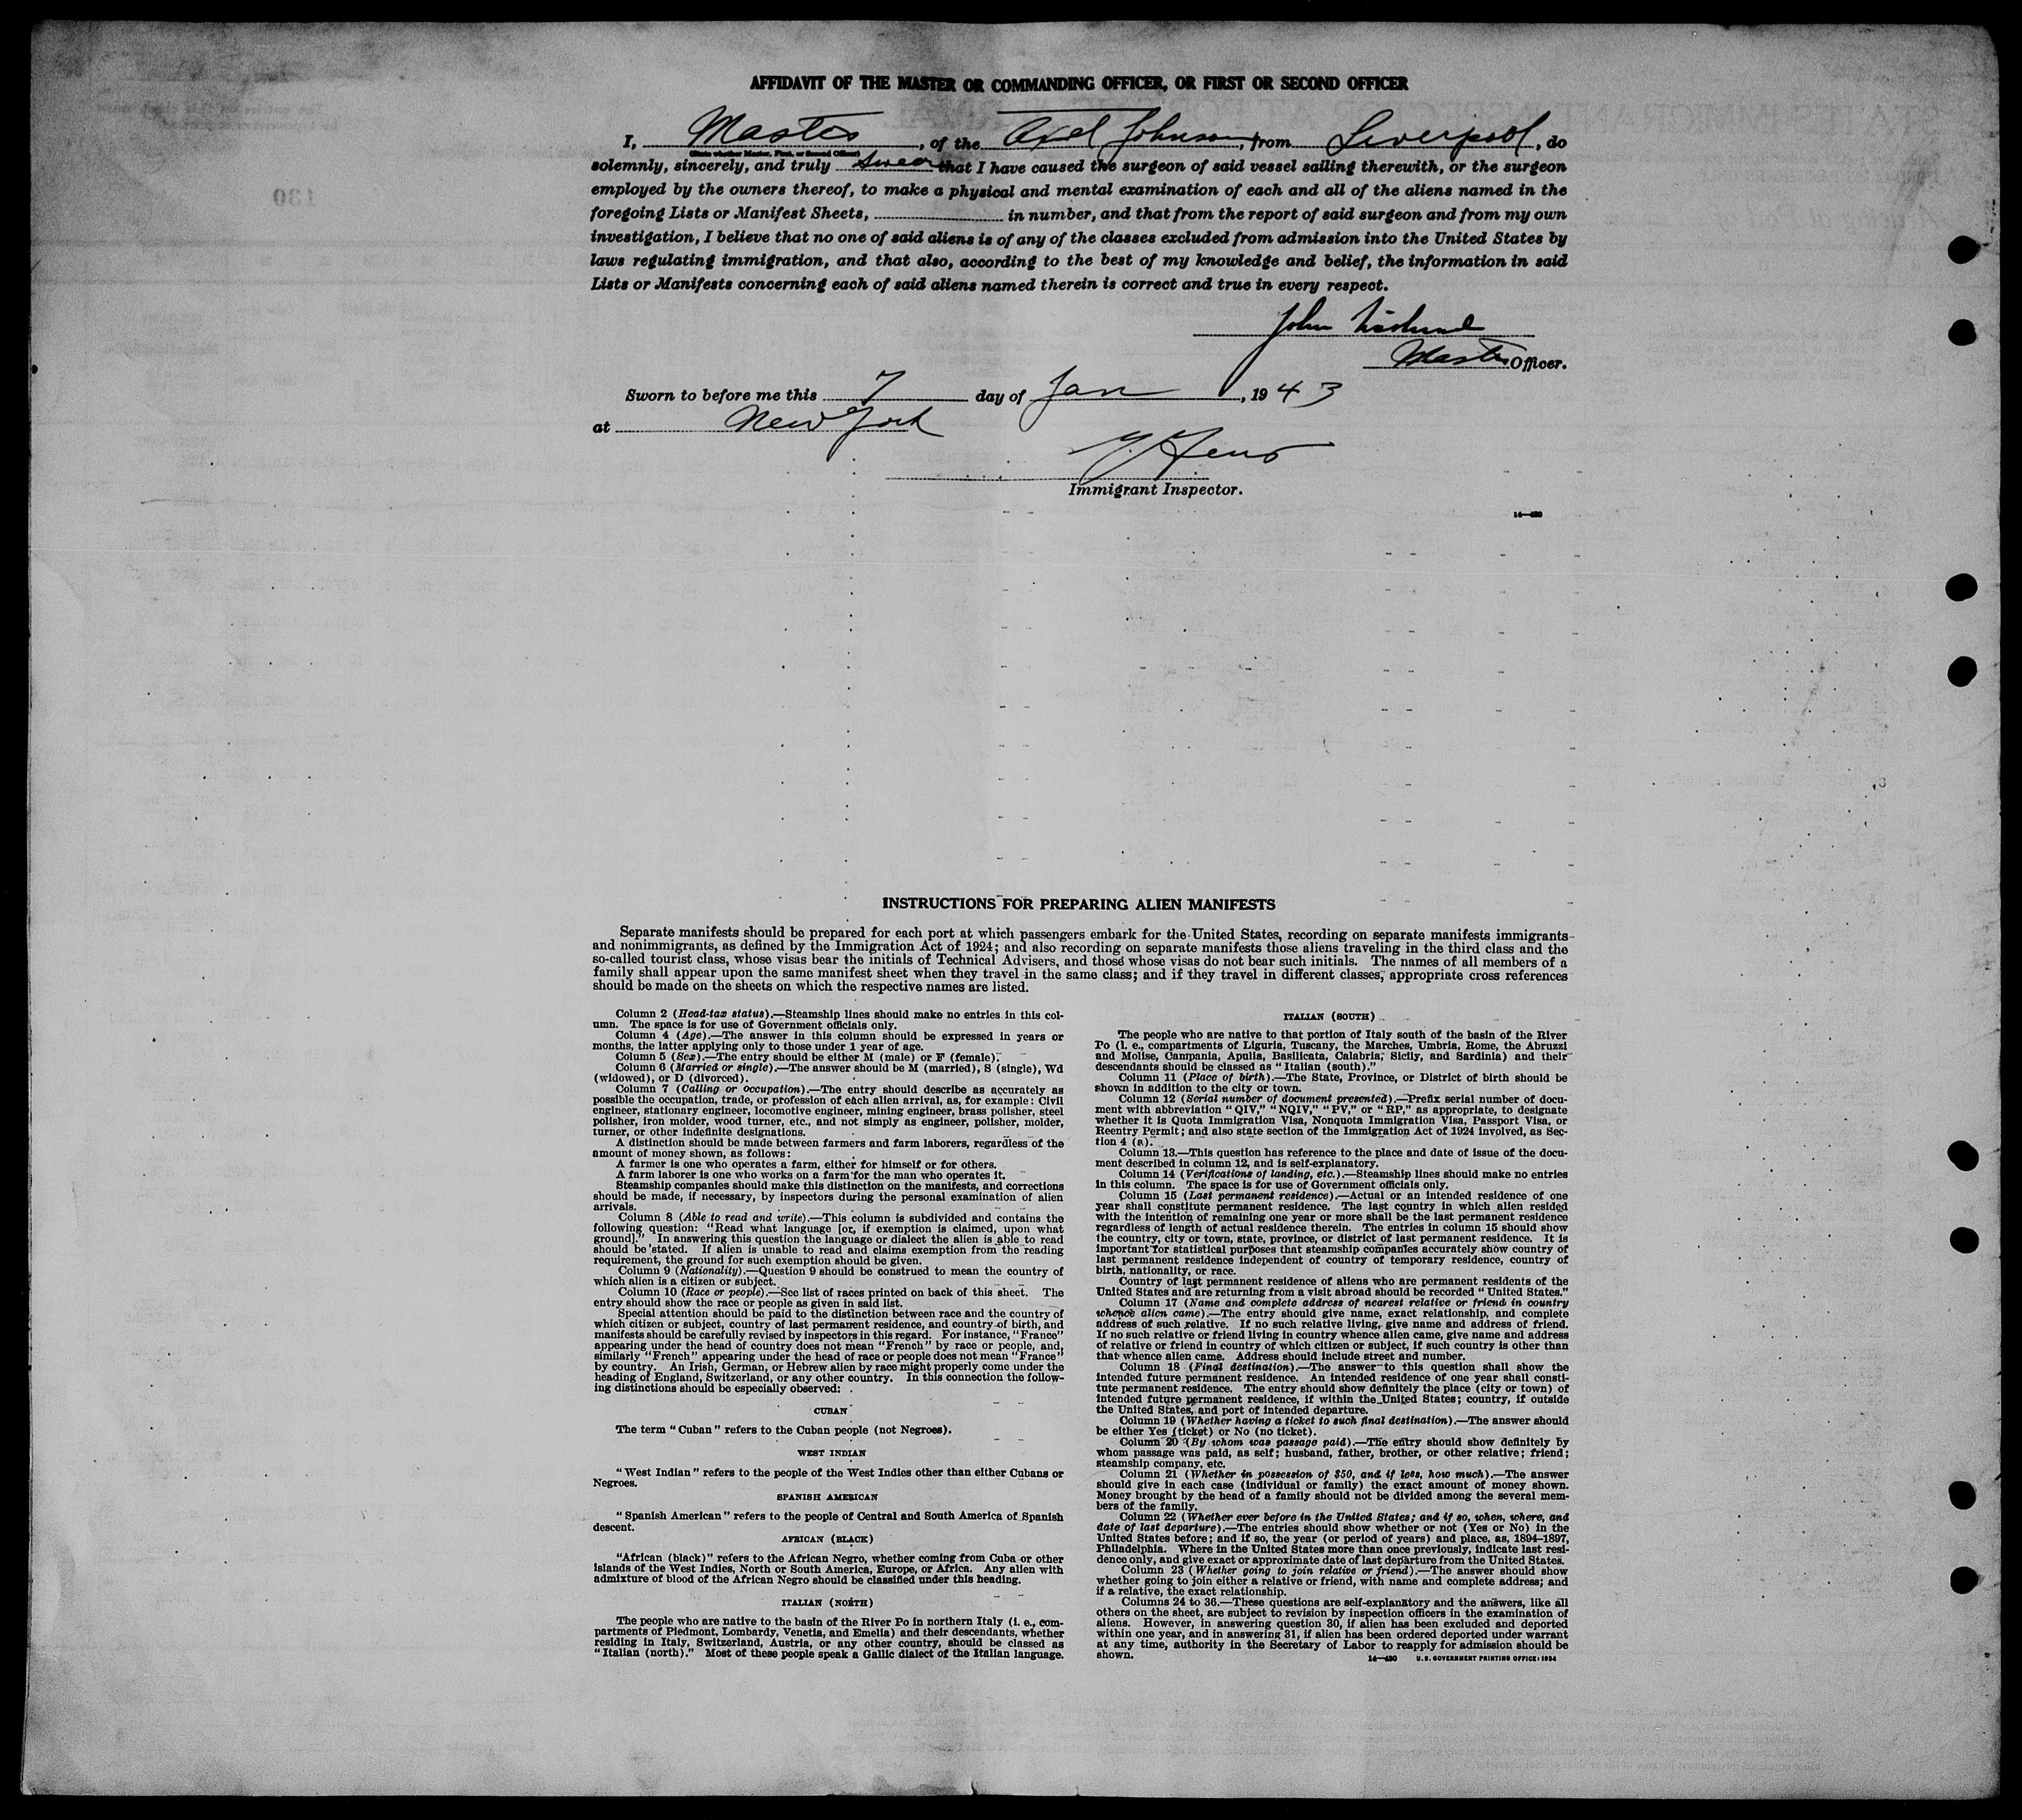 AFFIDAVIT OF THE MASTER OR COMMANDING OFFICER, OR FIRST OR SECOND OFFICER
I, Master, of the Axel Johnson, from Liverpool, do
(State whether Master, First, or Second Officer)
solemnly, sincerely, and truly swear that I have caused the surgeon of said vessel sailing therewith, or the surgeon
employed by the owners thereof, to make a physical and mental examination of each and all of the aliens named in the
foregoing Lists or Manifest Sheets, in number, and that from the report of said surgeon and from my own
investigation, I believe that no one of said aliens is of any of the classes excluded from admission into the United States by
laws regulating immigration, and that also, according to the best of my knowledge and belief, the information in said
Lists or Manifests concerning each of said aliens named therein is correct and true in every respect.
John
Master Officer.
Sworn to before me this 7 day of Jan, 1943
at New York
Immigrant Inspector.
14—430
130
INSTRUCTIONS FOR PREPARING ALIEN MANIFESTS
Separate manifests should be prepared for each port at which passengers embark for the United States, recording on separate manifests immigrants
and nonimmigrants, as defined by the Immigration Act of 1924; and also recording on separate manifests those aliens traveling in the third class and the
so-called tourist class, whose visas bear the initials of Technical Advisers, and those whose visas do not bear such initials. The names of all members of a
family shall appear upon the same manifest sheet when they travel in the same class; and if they travel in different classes, appropriate cross references
should be made on the sheets on which the respective names are listed.
Column 2 (Head-tax status).—Steamship lines should make no entries in this col-
umn. The space is for use of Government officials only.
Column 4 (Age).—The answer in this column should be expressed in years or
months, the latter applying only to those under 1 year of age.
Column 5 (Sex).—The entry should be either M (male) or F (female).
Column 6 (Married or single).—The answer should be M (married), S (single), Wd
(widowed), or D (divorced).
Column 7 (Calling or occupation).—The entry should describe as accurately as
possible the occupation, trade, or profession of each alien arrival, as, for example: Civil
engineer, stationary engineer, locomotive engineer, mining engineer, brass polisher, steel
polisher, iron molder, wood turner, etc., and not simply as engineer, polisher, molder,
turner, or other indefinite designations.
A distinction should be made between farmers and farm laborers, regardless of the
amount of money shown, as follows:
A farmer is one who operates a farm, either for himself or for others.
A farm laborer is one who works on a farm for the man who operates it.
Steamship companies should make this distinction on the manifests, and corrections
should be made, if necessary, by inspectors during the personal examination of alien
arrivals.
Column 8 (Able to read and write).—This column is subdivided and contains the
following question: "Read what language [or, if exemption is claimed, upon what
ground]." In answering this question the language or dialect the alien is able to read
should be stated. If alien is unable to read and claims exemption from the reading
requirement, the ground for such exemption should be given.
Column 9 (Nationality).—Question 9 should be construed to mean the country of
which alien is a citizen or subject.
Column 10 (Race or people).—See list of races printed on back of this sheet. The
entry should show the race or people as given in said list.
Special attention should be paid to the distinction between race and the country of
which citizen or subject, country of last permanent residence, and country of birth, and
manifests should be carefully revised by inspectors in this regard. For instance, "France"
appearing under the head of country does not mean "French" by race or people, and,
similarly "French" appearing under the head of race or people does not mean "France"
by country. An Irish, German, or Hebrew alien by race might properly come under the
heading of England, Switzerland, or any other country. In this connection the follow-
ing distinctions should be especially observed:
CUBAN
The term "Cuban" refers to the Cuban people (not Negroes).
WEST INDIAN
"West Indian" refers to the people of the West Indies other than either Cubans or
Negroes.
SPANISH AMERICAN
"Spanish American" refers to the people of Central and South America of Spanish
descent.
AFRICAN (BLACK)
"African (black)" refers to the African Negro, whether coming from Cuba or other
islands of the West Indies, North or South America, Europe, or Africa. Any alien with
admixture of blood of the African Negro should be classified under this heading.
ITALIAN (NORTH)
The people who are native to the basin of the River Po in northern Italy (i. e., com-
partments of Piedmont, Lombardy, Venetia, and Emelia) and their descendants, whether
residing in Italy, Switzerland, Austria, or any other country, should be classed as
"Italian (north)." Most of these people speak a Gallic dialect of the Italian language.
ITALIAN (SOUTH)
The people who are native to that portion of Italy south of the basin of the River
Po (i. e., compartments of Liguria, Tuscany, the Marches, Umbria, Rome, the Abruzzi
and Molise, Campania, Apulia, Basilicata, Calabria, Sicily, and Sardinia) and their
descendants should be classed as "Italian (south)."
Column 11 (Place of birth).—The State, Province, or District of birth should be
shown in addition to the city or town.
Column 12 (Serial number of document presented).—Prefix serial number of docu-
ment with abbreviation "QIV," "NQIV," "PV," or "RP," as appropriate, to designate
whether it is Quota Immigration Visa, Nonquota Immigration Visa, Passport Visa, or
Reentry Permit; and also state section of the Immigration Act of 1924 involved, as Sec-
tion 4 (a).
Column 13.—This question has reference to the place and date of issue of the docu-
ment described in column 12, and is self-explanatory.
Column 14 (Verifications of landing, etc.).—Steamship lines should make no entries
in this column. The space is for use of Government officials only.
Column 15 (Last permanent residence).—Actual or an intended residence of one
year shall constitute permanent residence. The last country in which alien resided
with the intention of remaining one year or more shall be the last permanent residence
regardless of length of actual residence therein. The entries in column 15 should show
the country, city or town, state, province, or district of last permanent residence. It is
important for statistical purposes that steamship companies accurately show country of
last permanent residence independent of country of temporary residence, country of
birth, nationality, or race.
Country of last permanent residence of aliens who are permanent residents of the
United States and are returning from a visit abroad should be recorded "United States."
Column 17 (Name and complete address of nearest relative or friend in country
whence alien came).—The entry should give name, exact relationship, and complete
address of such relative. If no such relative living, give name and address of friend.
If no such relative or friend living in country whence alien came, give name and address
of relative or friend in country of which citizen or subject, if such country is other than
that whence alien came. Address should include street and number.
Column 18 (Final destination).—The answer to this question shall show the
intended future permanent residence. An intended residence of one year shall consti-
tute permanent residence. The entry should show definitely the place (city or town) of
intended future permanent residence, if within the United States; country, if outside
the United States, and port of intended departure.
Column 19 (Whether having a ticket to such final destination).—The answer should
be either Yes (ticket) or No (no ticket).
Column 20 (By whom was passage paid).—The entry should show definitely by
whom passage was paid, as self; husband, father, brother, or other relative; friend;
steamship company, etc.
Column 21 (Whether in possession of $50, and if less, how much).—The answer
should give in each case (individual or family) the exact amount of money shown.
Money brought by the head of a family should not be divided among the several mem-
bers of the family.
Column 22 (Whether ever before in the United States; and if so, when, where, and
date of last departure).—The entries should show whether or not (Yes or No) in the
United States before; and if so, the year (or period of years) and place, as, 1894–1897,
Philadelphia. Where in the United States more than once previously, indicate last resi-
dence only, and give exact or approximate date of last departure from the United States.
Column 23 (Whether going to join relative or friend).—The answer should show
whether going to join either a relative or friend, with name and complete address; and
if a relative, the exact relationship.
Columns 24 to 36.—These questions are self-explanatory and the answers, like all
others on the sheet, are subject to revision by inspection officers in the examination of
aliens. However, in answering question 30, if alien has been excluded and deported
within one year, and in answering 31, if alien has been ordered deported under warrant
at any time, authority in the Secretary of Labor to reapply for admission should be
shown.
14—430 U. S. GOVERNMENT PRINTING OFFICE: 1934